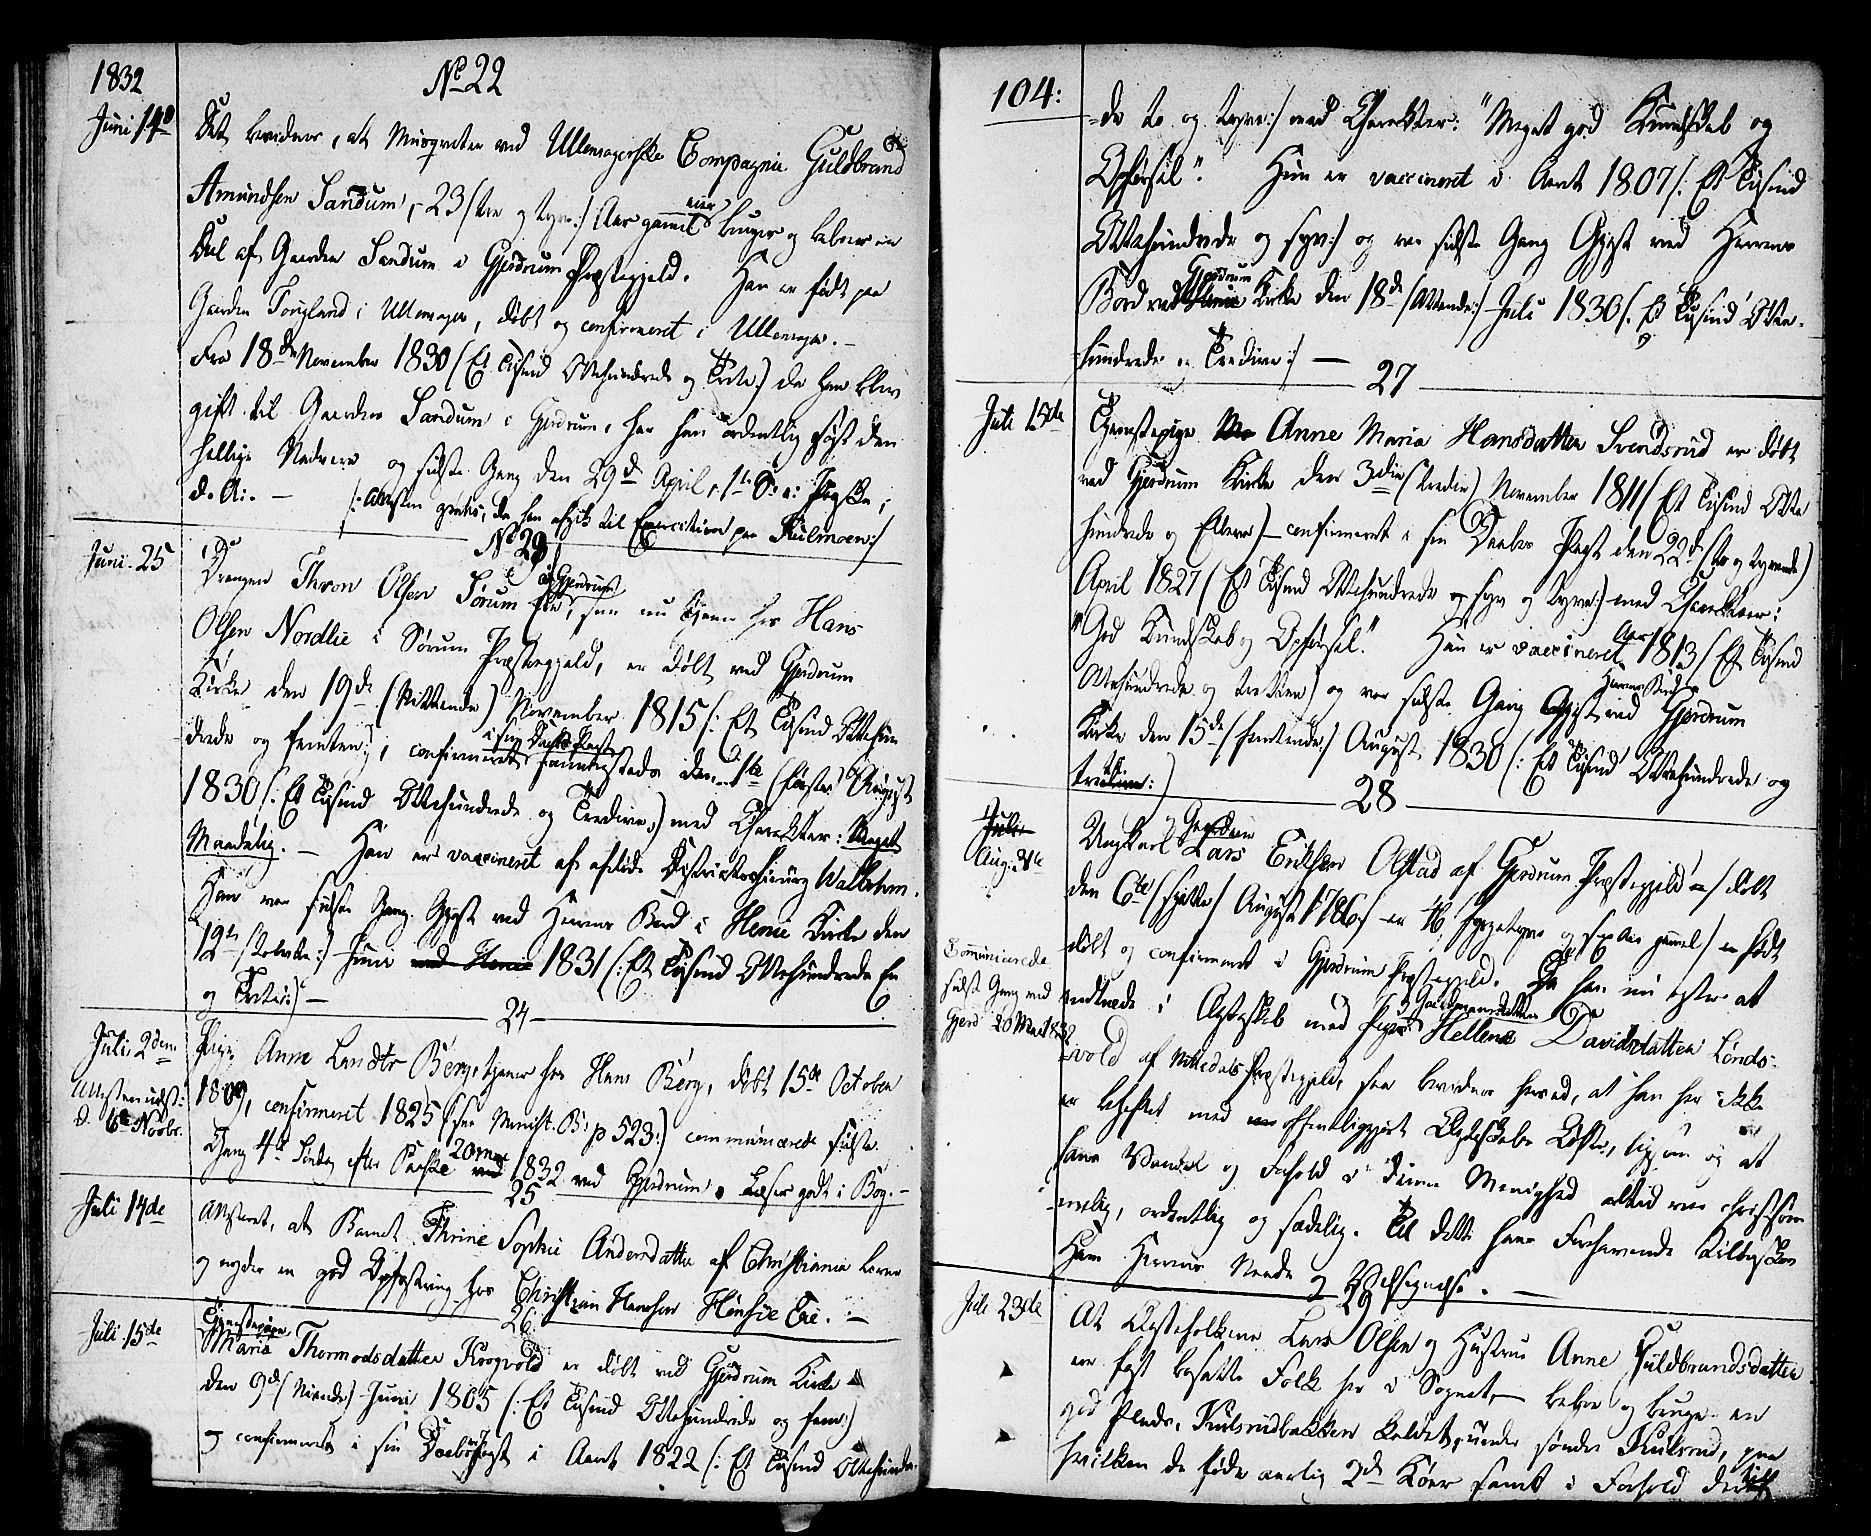 1832
No 22
Juni 14d
Det bevidnes, at Musqueten ved Ullensagerske Compagnie Guldbrand
Amundsen Sandum, 23 (tre og tyve:) Aar gammel eier bruger og beboer en
Deel af Gaarden Sandum i Gjerdrum Præstegjeld. Han er født paa
Gaarden Fougland i Ullensager, døbt og confirmeret i Ullensager.-
Fra 18de November 1830 (Et Tusind Ottehundrede og Treti:) da han blev
gift til Gaarden Sandum i Gjerdrum, har han ordentlig søgt den
hellige Nadvere og sidste Gang den 29d April, 1te S: e: Paaske,
d. A:. - (: Attesten gratis, da han afgik til Exercitien paa Kulmoen:)
No 23
Juni 25
Drengen Thron Olsen Sørum af Gjerdrum, som nu tjener hos Hans
Olsen Nordlie i Sørum Præstegjeld, er døbt ved Gjerdrum
Kirke den 19de (Nittende) November 1815 (: Et Tusind Ottehun
drede og femten:), confirmeret i sin Daabs Pagt sammesteds den 1te (første) August
1830 (: Et Tusind Ottehundrede og Tredive:) med Charakter: Meget
Maadelig. - Han er vaccineret af afdøde Districtschirurg Wallbohm.
Han var sidste Gang Gjest ved Herrens Bord i Henie Kirke den
12te (Tolvte:) Juni 1831 (: Et Tusind Ottehundrede En
og Treti:) -
24
Juli 2den
Attesten udst:
d. 6te Novbr.
Pige Anne Larsdtr Berg, tjener hos Hans Berg, døbt 15de October
1809, confirmeret 1825 (see Minist. B: p 523:) communicerede sidste
Gang 4de Søndag efter Paaske 20 Mai 1832 ved Gjerdrum. Læser godt i Bog.-
25
Juli 14de
Attesteret, at Barnet Thrine Sophie Andersdatter af Christiania lever
og nyder en god Opfostring hos Christian Hansen Hønsie Eie. -
26
Juli 15de
Tjenestepigen
Maria Thormodsdatter Krogvold er døbt ved Gjerdrum Kirke
den 9de (Niende) Juni 1805 (: Et Tusind Ottehundrede og fem:)
og confirmeret i sin Daabspagt i Aaret 1822 (: Et Tusind Ottehundre
104:
-de to og tyve:) med Charakter: "Meget god Kundskab og
Opførsel". Hun er vaccineret i Aaret 1807 (: Et Tusind
Ottehundrede og syv:) og var sidste Gang Gjest ved Herrens
Bord ved Gjerdrum Kirke den 18de (Attende:) Juli 1830 (: Et Tusind Otte-
hundrede og Tredive:) -
27
Juli 15de
Tjenestepige Anne Maria Hansdatter Svendsrud er døbt
ved Gjerdrum Kirke den 3die (Tredie) November 1811 (Et Tusind Otte
hundrede og Elleve) - confirmeret i sin Daabes Pagt den 22de (to og tyvende)
April 1827 (Et Tusind Ottehundrede og syv og tyve:) med Charakter:
"God Kundskab og Opførsel." Hun er vaccineret Aar 1813 (Et Tusind
Ottehundrede og tretten) og var sidste Gang Gjest ved Herrens Bord i Gjerdrum
Kirke den 15de (femtende:) August 1830 (: Et Tusind Ottehundrede og
tredive:)
28
Juli
Aug:
Ungkarl Lars Eriksen Olstad af Gjerdrum Præstegjeld (døbt
den 6te (sjette) August 1786 - er 46 fyrgetyve og sex Aar gammel) er født
døbt og confirmeret i Gjerdrum Præstegjeld. Da han nu agter at
Communicerede
sidste Gang ved
Gjerd 20 Mai 1832
indtræde i Ægteskab med Pige Gaardmandsdatter Hellene Davidsdatter Lønds-
vold af Nittedals Præstegjeld, saa bevidnes herved, at han her ikke
er beheftet med offentliggjort Ægteskabs Løfte, ligesom og at
hans Vandel og Forhold i denne Menighed altid var christsøm-
melig, ordentlig og sædelig. Til dette hans Forehavende tilønskes
Ham Herrens Naade og Velsignelse. -
29
Juli 23de
At Ægtefolkene Lars Olsen og Hustrue Anne Guldbrandsdatter
ere fast bosatte Folk her i Sognet, - beboe og bruge en
god Plads, Kulsrudbakken kaldet, under søndre Kulsrud, paa
hvilken de føde aarlig 2de Køer samt i Forhold dertil